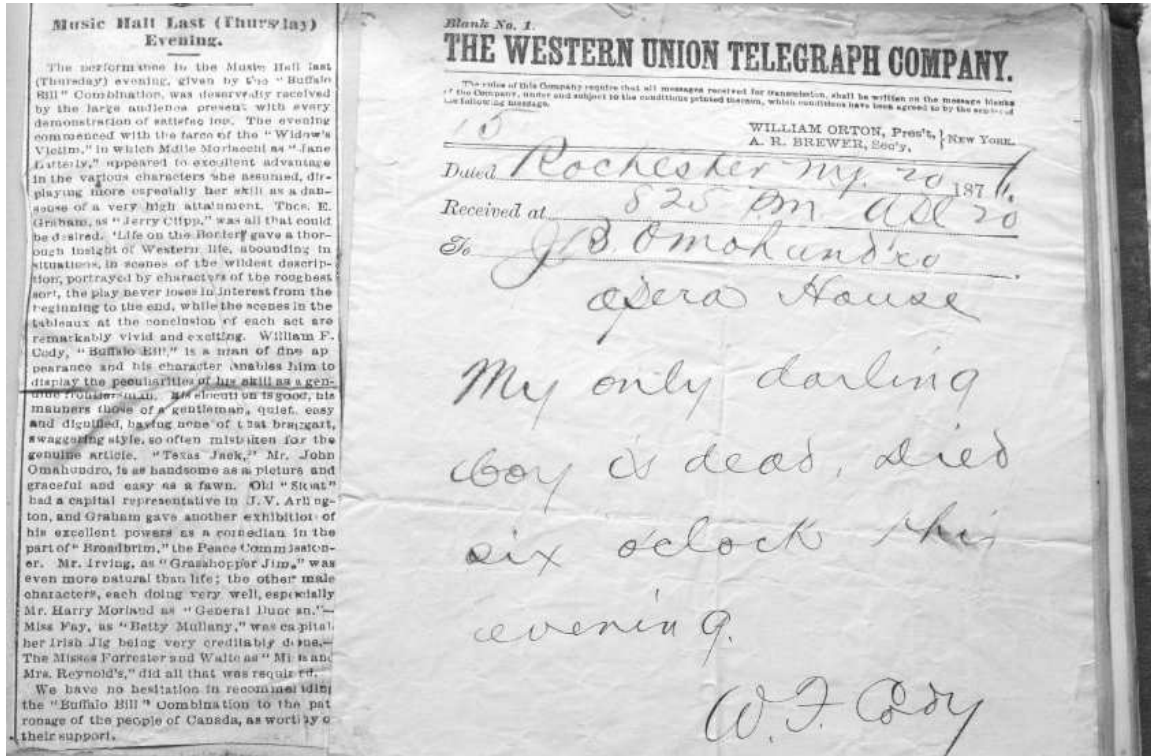 Music Hall Last (Thursday)
Evening.
The performance in the Music Hall last
(Thursday) evening, given by the "Buffalo
Bill" Combination, was deservedly received
by the large audience present with every
demonstration of satisfac ion. The evening
commenced with the farce of the "Widow's
Victim," in which Mdlle Morlacchi as "Jane
Chatterly," appeared to excellent advantage
in the various characters she assumed, dis-
playing more especially her skill as a dan-
seuse of a very high attainment. Thos. E.
Graham, as "Jerry Clipp," was all that could
be desired. 'Life on the Border' gave a thor-
ough insight of Western life, abounding in
situations, in scenes of the wildest descrip-
tion, portrayed by characters of the roughest
sort, the play never loses in interest from the
beginning to the end, while the scenes in the
tableaux at the conclusion of each act are
remarkably vivid and exciting. William F.
Cody, "Buffalo Bill," is a man of fine ap
pearance and his character enables him to
display the peculiarities of his skill as a gen-
uine frontier man. His elocution is good, his
manners those of a gentleman, quiet, easy
and dignified, having none of that braggart,
swaggering style, so often mistaken for the
genuine article. "Texas Jack," Mr. John
Omahundro, is as handsome as a picture and
graceful and easy as a fawn. Old "Sloat"
had a capital representative in J. V. Arling-
ton, and Graham gave another exhibition of
his excellent powers as a comedian in the
part of "Broadbrim," the Peace Commission-
er. Mr. Irving, as "Grasshopper Jim," was
even more natural than life; the other male
characters, each doing very well, especially
Mr. Harry Morland as "General Duncan."—
Miss Fay, as "Betty Mullany," was capital
her Irish Jig being very creditably done.—
The Misses Forrester and Waite as "Miss and
Mrs. Reynold's," did all that was required.
We have no hesitation in recommending
the "Buffalo Bill" Combination to the pat
ronage of the people of Canada, as worthy o
their support.
Blank No. 1.
THE WESTERN UNION TELEGRAPH COMPANY.
The rules of this Company require that all messages received for transmission, shall be written on the message blanks
of the Company, under and subject to the conditions printed thereon, which conditions have been agreed to by the sender of
the following message.
15
WILLIAM ORTON, Pres't, } NEW YORK.
A. R. BREWER, Sec'y,
Dated Rochester Ny. 20 1876.
Received at 825 Pm. 20
To J B. Omohundro
Opera House
My only darling
boy is dead, Died
six o'clock this
evening.
W. F. Cody